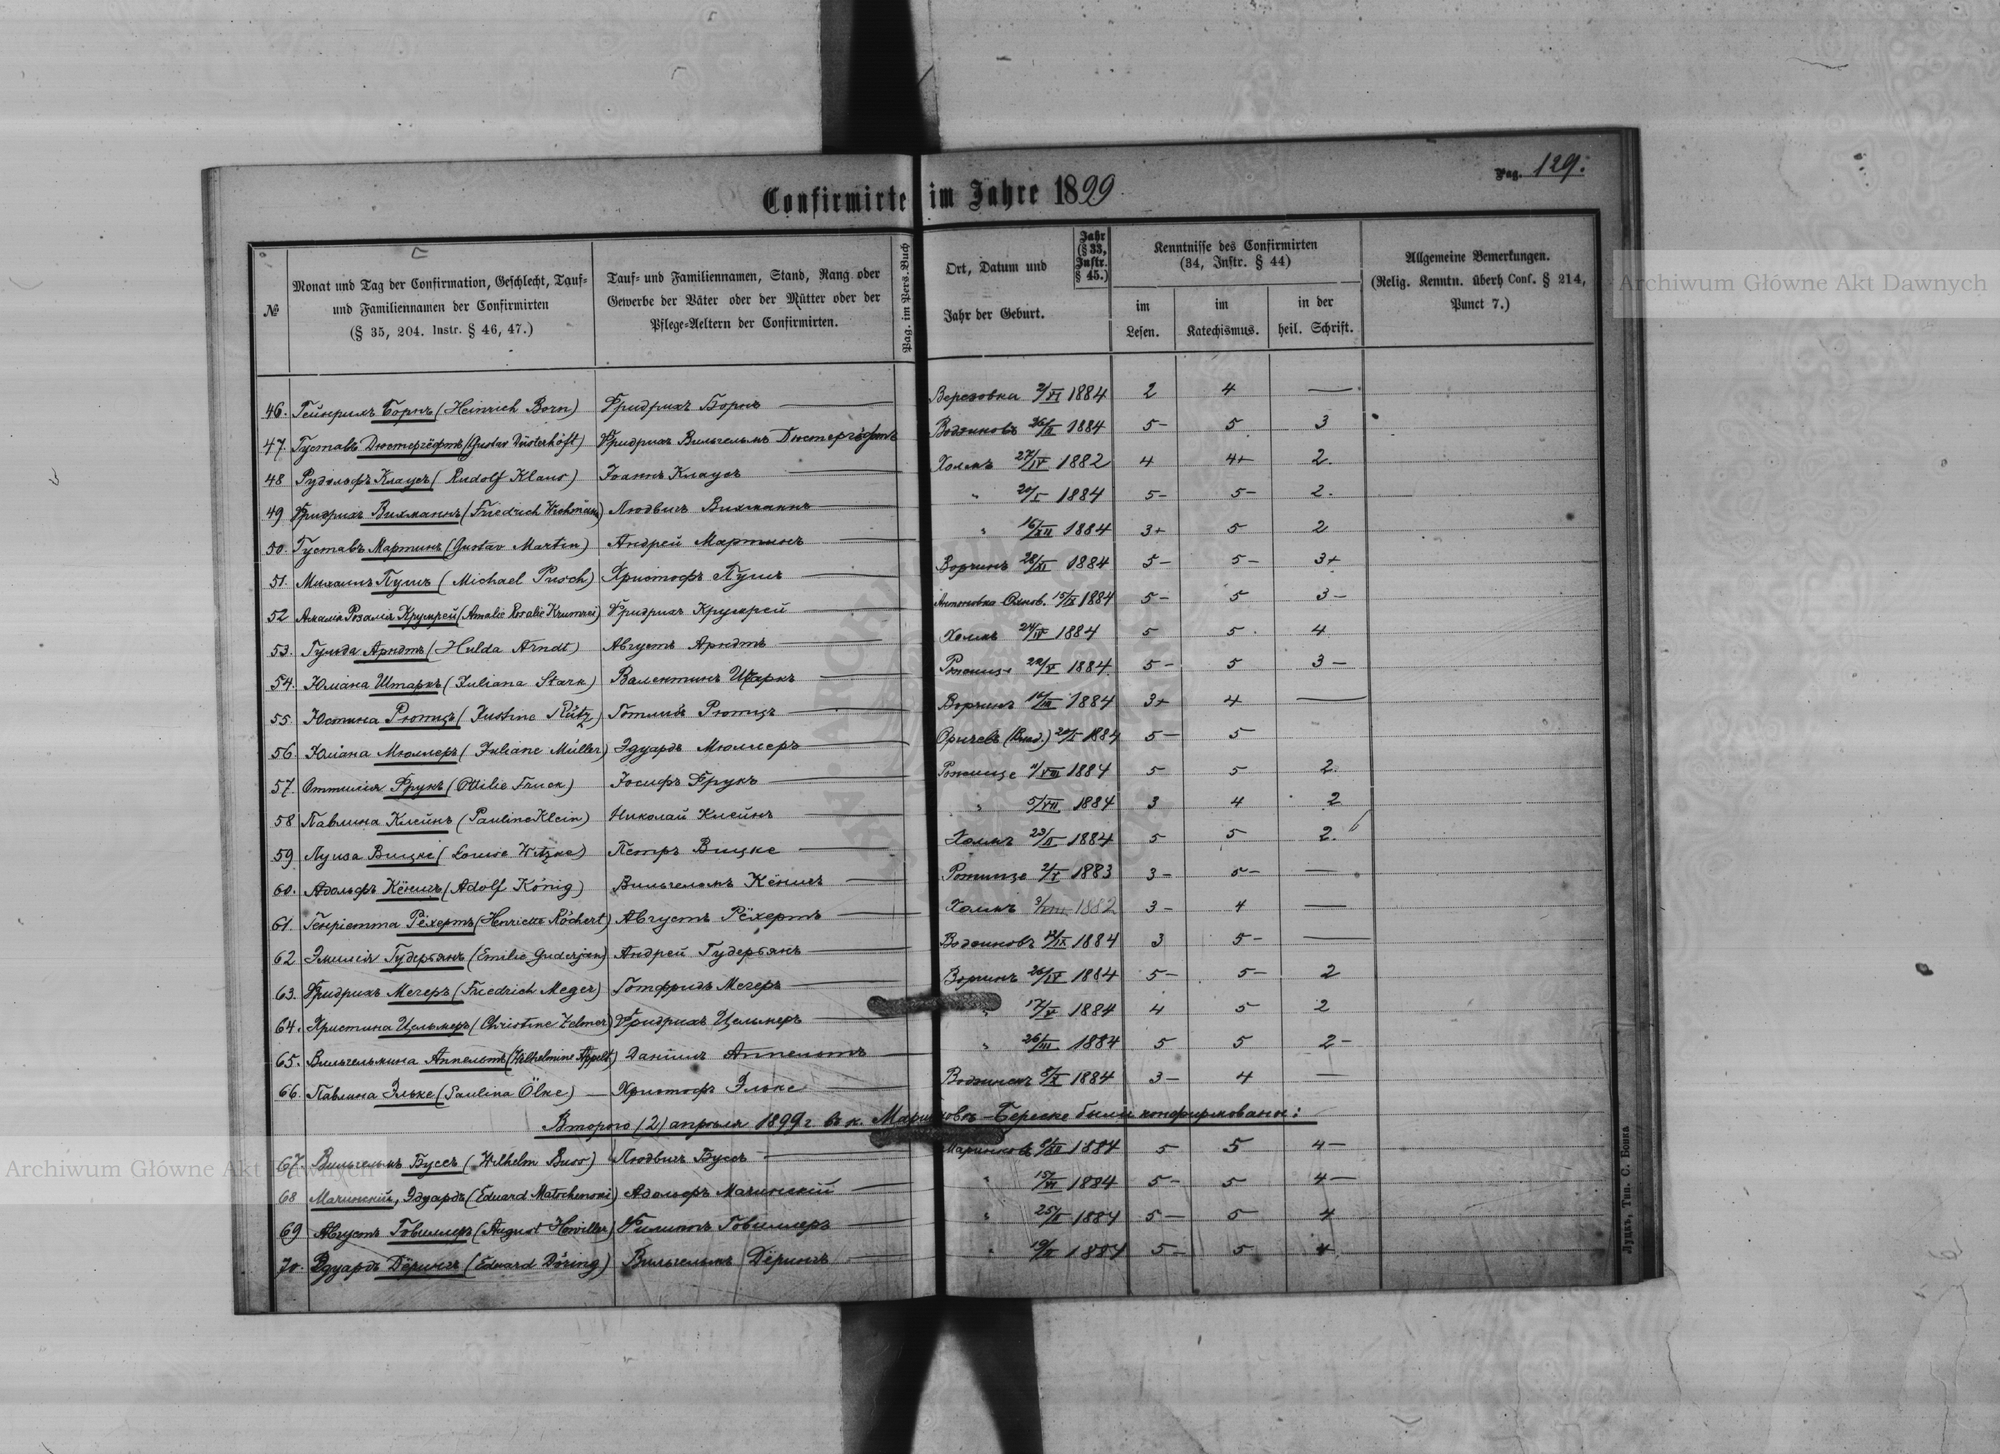 Pag. 129.
Confirmirte im Jahre 1899
№
Monat und Tag der Confirmation, Geschlecht, Tauf- und Familiennamen der Confirmirten (§ 35, 204. Instr. § 46, 47.)
Tauf- und Familiennamen, Stand, Rang oder Gewerbe der Väter oder der Mütter oder der Pflege-Aeltern der Confirmirten.
Pag. im Pers. Buch
Ort, Datum und Jahr der Geburt.
Jahr (§ 33, Instr. § 45.)
Kenntnisse des Confirmirten (34, Instr. § 44)
im Lesen.
im Katechismus.
in der heil. Schrift.
Allgemeine Bemerkungen. (Relig. Kenntn. überh Conf. § 214, Punct 7.)
46. Гейнрихъ Борнъ (Heinrich Born) Фридрихъ Борнъ — Березовка 2/XI 1884 2 4 —
47. Густавъ Дюстергёфтъ (Gustav Düsterhöft) Фридрихъ Вильгельмъ Дюстергёфтъ 1884 5- 5 3
48 Рудольфъ Клаусъ (Rudolf Klaus) Іоаннъ Клаусъ — Холмъ 27/IV 1882 4 4+ 2.
49 Фридрихъ Вихманнъ (Friedrich Wichmann) Людвигъ Вихманнъ — " 20/X 1884 5- 5- 2.
50. Густавъ Мартинъ (Gustav Martin) Андрей Мартинъ — " 16/XII 1884 3+ 5 2
51. Михаилъ Пушъ (Michael Pusch) Христофъ Пушъ — Ворчинъ 28/XI 1884 5- 5- 3+
52 Амалія Розалія Крумрей (Amalie Rosalie Krumrei) Фридрихъ Крумрей — Антоновка 15/IX 1884 5- 5 3-
53. Гульда Арндтъ (Hulda Arndt) Августъ Арндтъ — Холмъ 24/IV 1884 5 5. 4
54. Юліана Штаркъ (Juliana Stark) Валентинъ Штаркъ — Рожище 22/V 1884. 5- 5 3-
55. Юстина Рютцъ (Justine Rütz) Готлибъ Рютцъ — Ворчинъ 1884 3+ 4 —
56. Юліана Мюллеръ (Juliane Müller) Эдуардъ Мюллеръ — 1884 5- 5
57. Оттилія Фрукъ (Ottilie Fruck) Іосифъ Фрукъ — Рожище 1884 5 5 2.
58 Павлина Клейнъ (Pauline Klein) Николай Клейнъ — " 5/VII 1884 3 4 2
59 Луиза Вицке (Louise Witzke) Петръ Вицке — Холмъ 23/II 1884 5 5 2.
60. Адольфъ Кёнигъ (Adolf König) Вильгельмъ Кёнигъ — Рожище 2/X 1883 3- 5- —
61. Генріетта Рёхертъ (Henriette Röchert) Августъ Рёхертъ — Холмъ 3/VIII 1882 3- 4 —
62 Эмилія Гудерьянъ (Emilie Guderjan) Андрей Гудерьянъ — 1884 3 5- —
63. Фридрихъ Мегеръ (Friedrich Meger) Готфридъ Мегеръ — Ворчинъ 26/IV 1884 5- 5- 2
64. Христина Цельмеръ (Christine Zelmer) Фридрихъ Цельмеръ — " 17/V 1884 4 5 2
65. Вильгельмина Аппельтъ (Wilhelmine Appelt) Даніилъ Аппельтъ — " 26/III 1884 5 5 2-
66. Павлина Эльке (Paulina Ölke) — Христофъ Эльке — 5/X 1884 3- 4 —
Второго (2) апрѣля 1899 г. въ к. Маринковъ-Береске были конфирмованы:
67. Вильгельмъ Буссъ (Wilhelm Buss) Людвигъ Буссъ — Маринковъ 1884 5 5 4-
68 Мачинскій, Эдуардъ (Eduard Matschenski) Адольфъ Мачинскій — " 15/VI 1884 5- 5 4-
69 Августъ Говиллеръ (August Howiller) Филиппъ Говиллеръ — " 25/X 1884 5- 5 4
70. Эдуардъ Дёрингъ (Eduard Döring) Вильгельмъ Дёрингъ — " 1884 5- 5 4
Луцкъ, Тип. С. Бонка
Archiwum Główne Akt Dawnych
Archiwum Główne Akt Dawnych